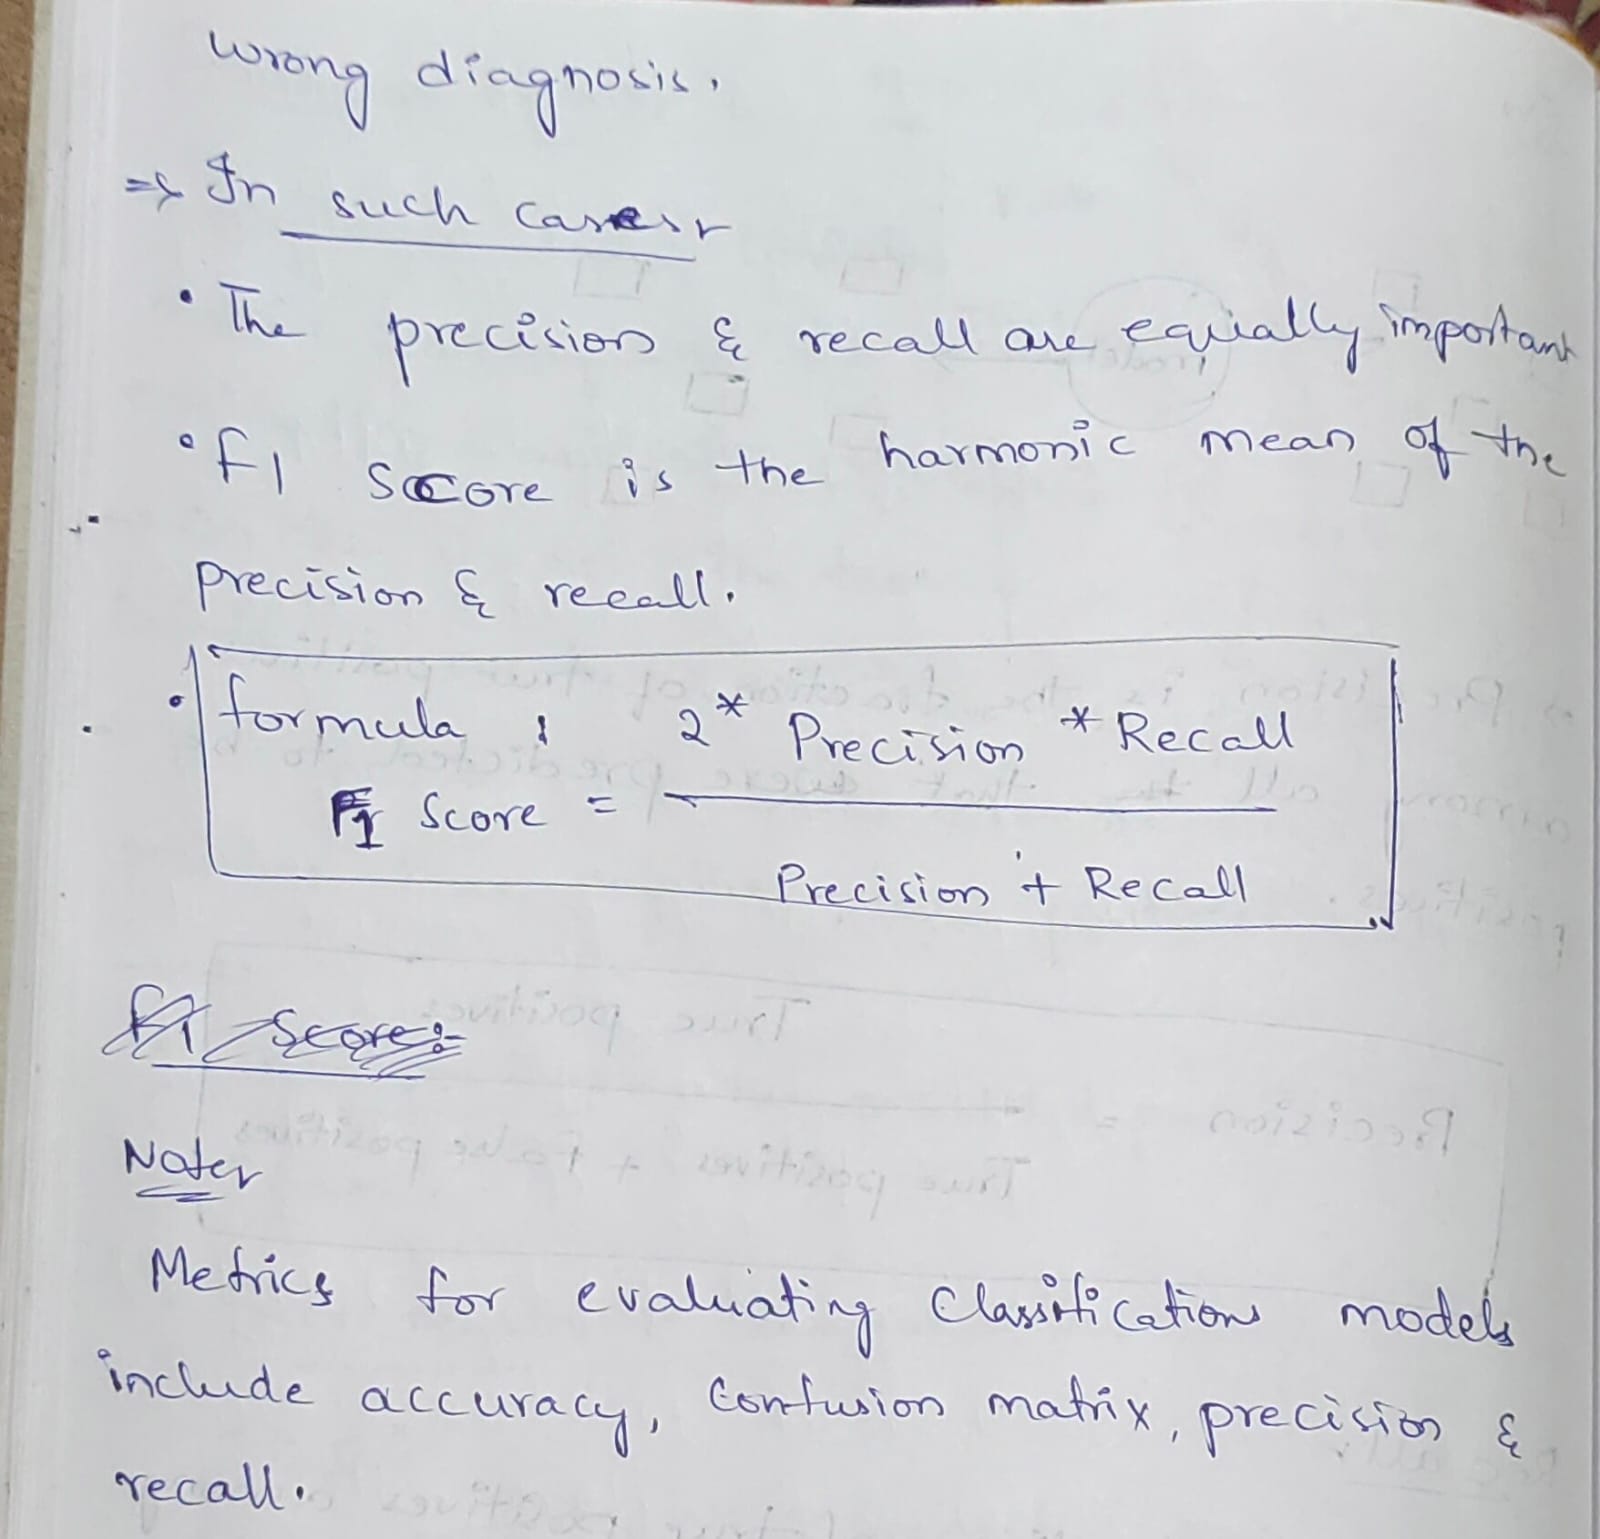 wrong diagnosis.
=> In such cases:-
• The precision & recall are equally important
• F1 Score is the harmonic mean of the
precision & recall.
• formula : 2 * Precision * Recall
F1 Score =
Precision + Recall
F1 Score:-
Note:-
Metrics for evaluating classification models
include accuracy, Confusion matrix, precision &
recall.